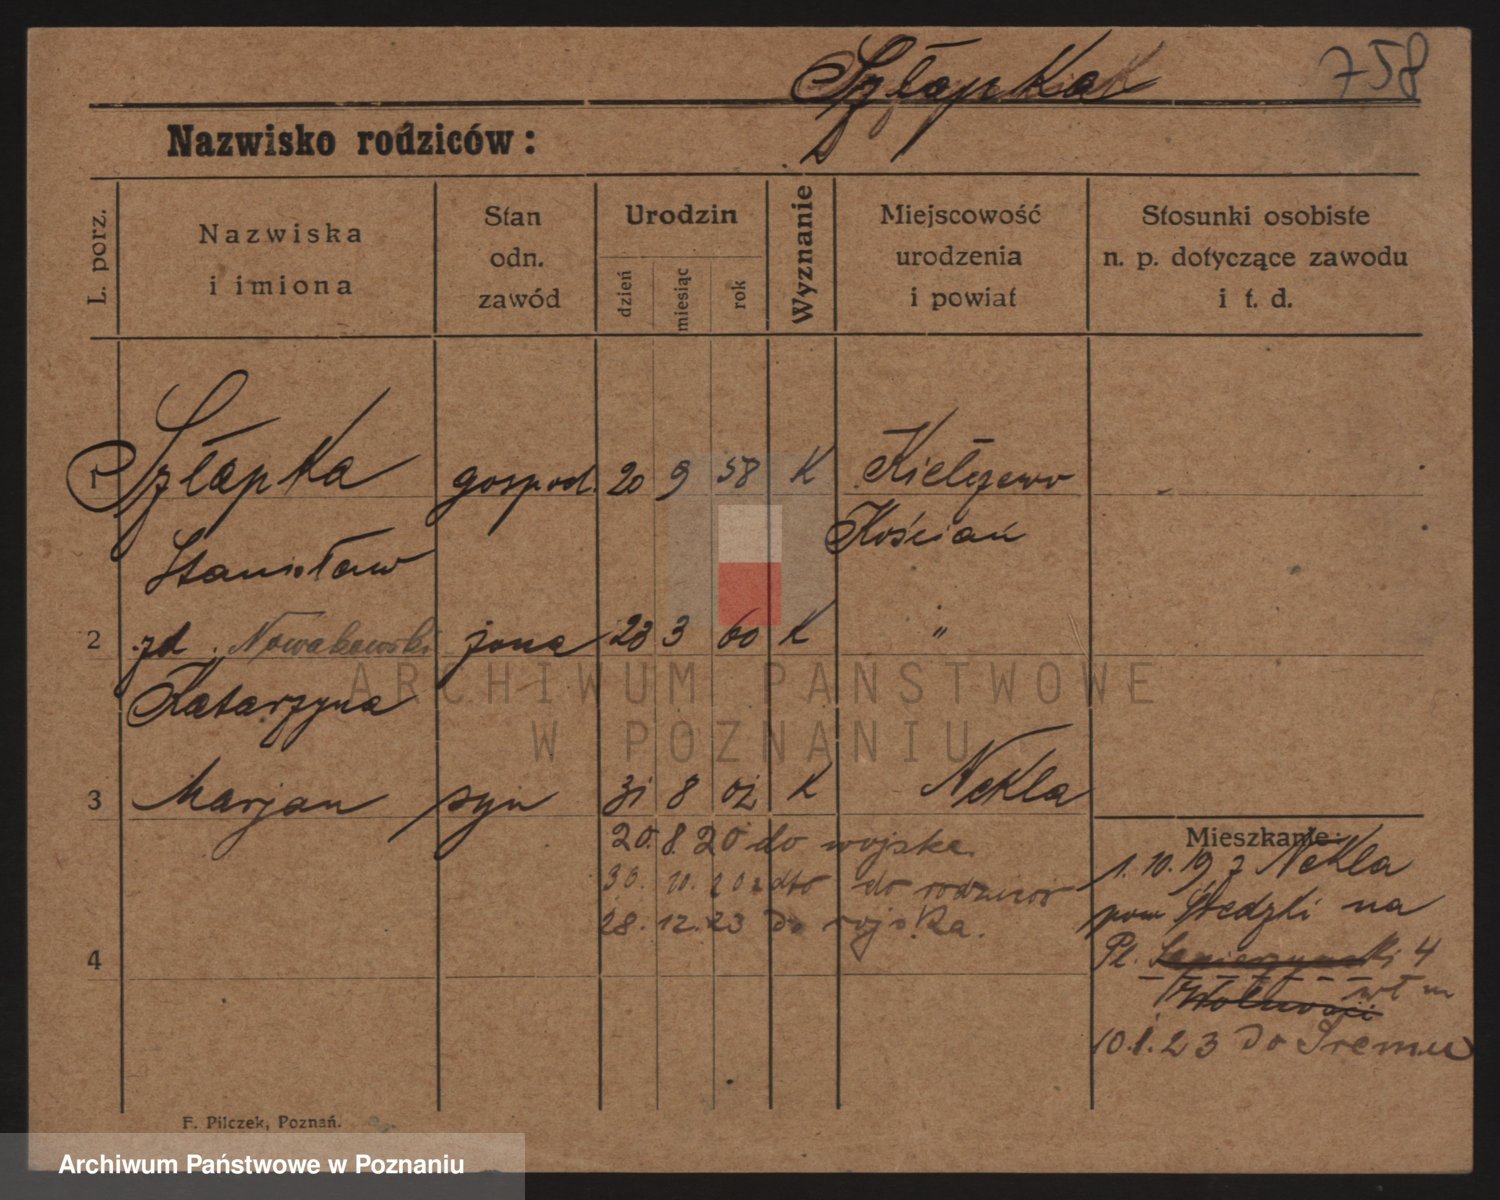 Szłapka
758
Nazwisko rodziców:
L. porz.
Nazwiska
i imiona
Stan
odn.
zawód
Urodzin
dzień
miesiąc
rok
Wyznanie
Miejscowość
urodzenia
i powiat
Stosunki osobiste
n. p. dotyczące zawodu
i t. d.
1 Szłapka gospod. 20 9 58 K Kiełczewo
Stanisław Kościan
2 zd. Nowakowski żona 23 3 60 K "
Katarzyna
3 Marjan syn 31 8 01 K Nekla
20. 8. 20 do wojska.
30. 10. 20 z dto do rodziców
28. 12. 23 Do wojska.
4
Mieszkanie:
1. 10. 19 z Nekla
pow na
Pl. 4
Wolności
10. 1. 23 Do Śremu
F. Pilczek, Poznań.
ARCHIWUM PAŃSTWOWE
W POZNANIU
Archiwum Państwowe w Poznaniu